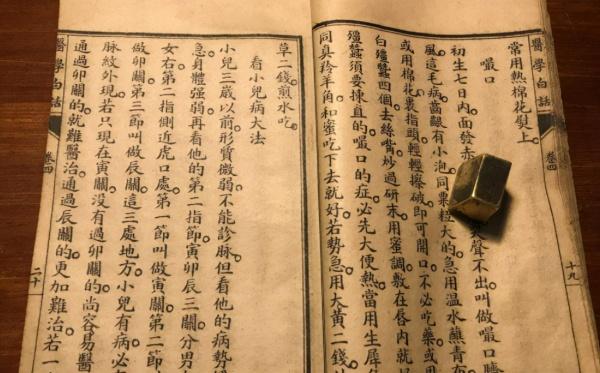 醫學白話 卷四 十九
常用熱棉花熨上。
噤口
初生七日內面發赤 聲不出叫做噤口臍
風。這毛病齒齦有小泡同粟粒大的。急用溫水蘸青布
或用棉花裹指頭。輕輕擦破。即可開口。不必吃藥。或用
白殭蠶四個。去絲嘴炒過研末。用蜜調敷在唇內就
殭蠶須要揀直的。噤口的症。必先大便熱。當用生犀
同真羚羊角和蜜吃下去就好。若勢急。用大黃二錢
草二錢煎水吃。
看小兒病大法
小兒三歲以前。形質微弱。不能診脈。但看他的病勢
急。身體強弱。再看他的第二指節寅卯辰三關。分男
女右。第二指側近虎口處。第一節叫做寅關。第二節
做卯關。第三節叫做辰關。這三處地方。小兒有病。必
脈紋外現。若只現在寅關。沒有過卯關的。尚容易醫
通過卯關的。就難醫治。通過辰關的。更加難治。若一
醫學白話 卷四 二十